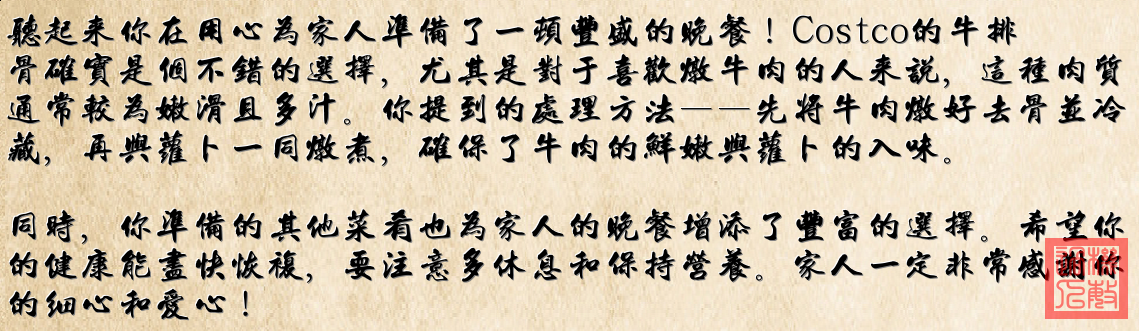 聽起來你在用心為家人準備了一頓豐盛的晚餐！Costco的牛排
骨確實是個不錯的選擇，尤其是對于喜歡燉牛肉的人來說，這種肉質
通常較為嫩滑且多汁。你提到的處理方法——先將牛肉燉好去骨並冷
藏，再與蘿卜一同燉煮，確保了牛肉的鮮嫩與蘿卜的入味。
同時，你準備的其他菜肴也為家人的晚餐增添了豐富的選擇。希望你
的健康能盡快恢複，要注意多休息和保持營養。家人一定非常感謝你
的細心和愛心！